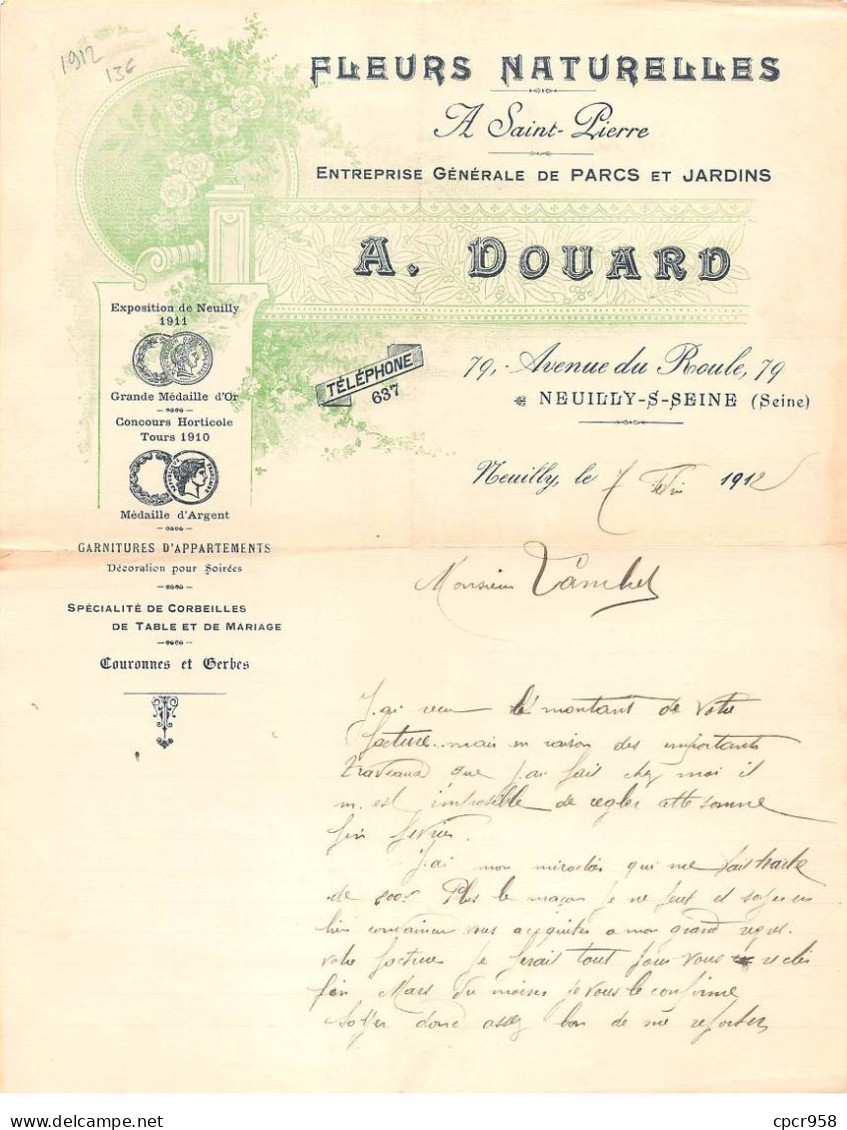 1912
136
FLEURS NATURELLES
A Saint-Pierre
ENTREPRISE GÉNÉRALE DE PARCS ET JARDINS
A. DOUARD
Exposition de Neuilly
1911
Grande Médaille d'Or
Concours Horticole
Tours 1910
Médaille d'Argent
GARNITURES D'APPARTEMENTS
Décoration pour Soirées
SPÉCIALITÉ DE CORBEILLES
DE TABLE ET DE MARIAGE
Couronnes et Gerbes
TÉLÉPHONE
637
79, Avenue du Roule, 79
NEUILLY-S-SEINE (Seine)
Neuilly, le 7 1912
Monsieur
J'ai reçu le montant de votre
facture mais en raison des importants
travaux que j'ai fait chez moi il
m'est impossible de régler cette somme
fin
J'ai mon qui me
de Plus le maçon je ne peut et
bien vous a mon grand
votre facture je ferait tout pour vous
fin Mars du moins je vous le confirme
donc assez bon de me
cpcr958